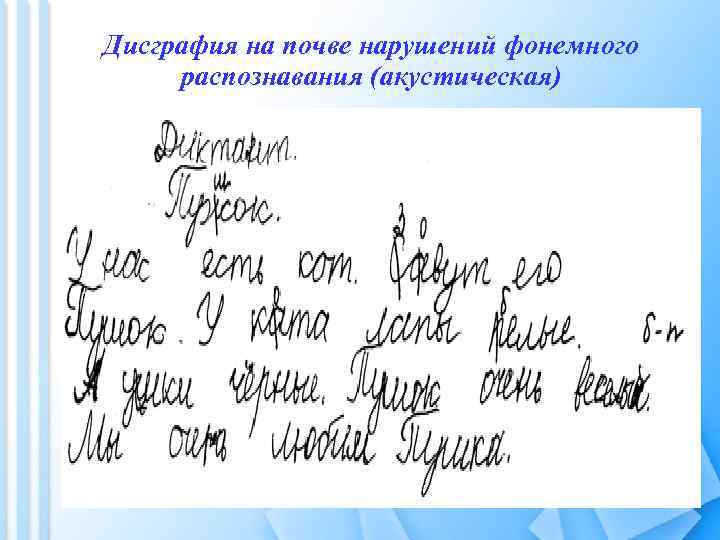 Дисграфия на почве нарушений фонемного
распознавания (акустическая)
Диктант.
ш
Пужок.
З о
У нас есть кот. Савут его
Пушок. У кота лапы белые. б-п
А ушки чёрные. Пушок очень веселый.
Мы очень любим Пушка.